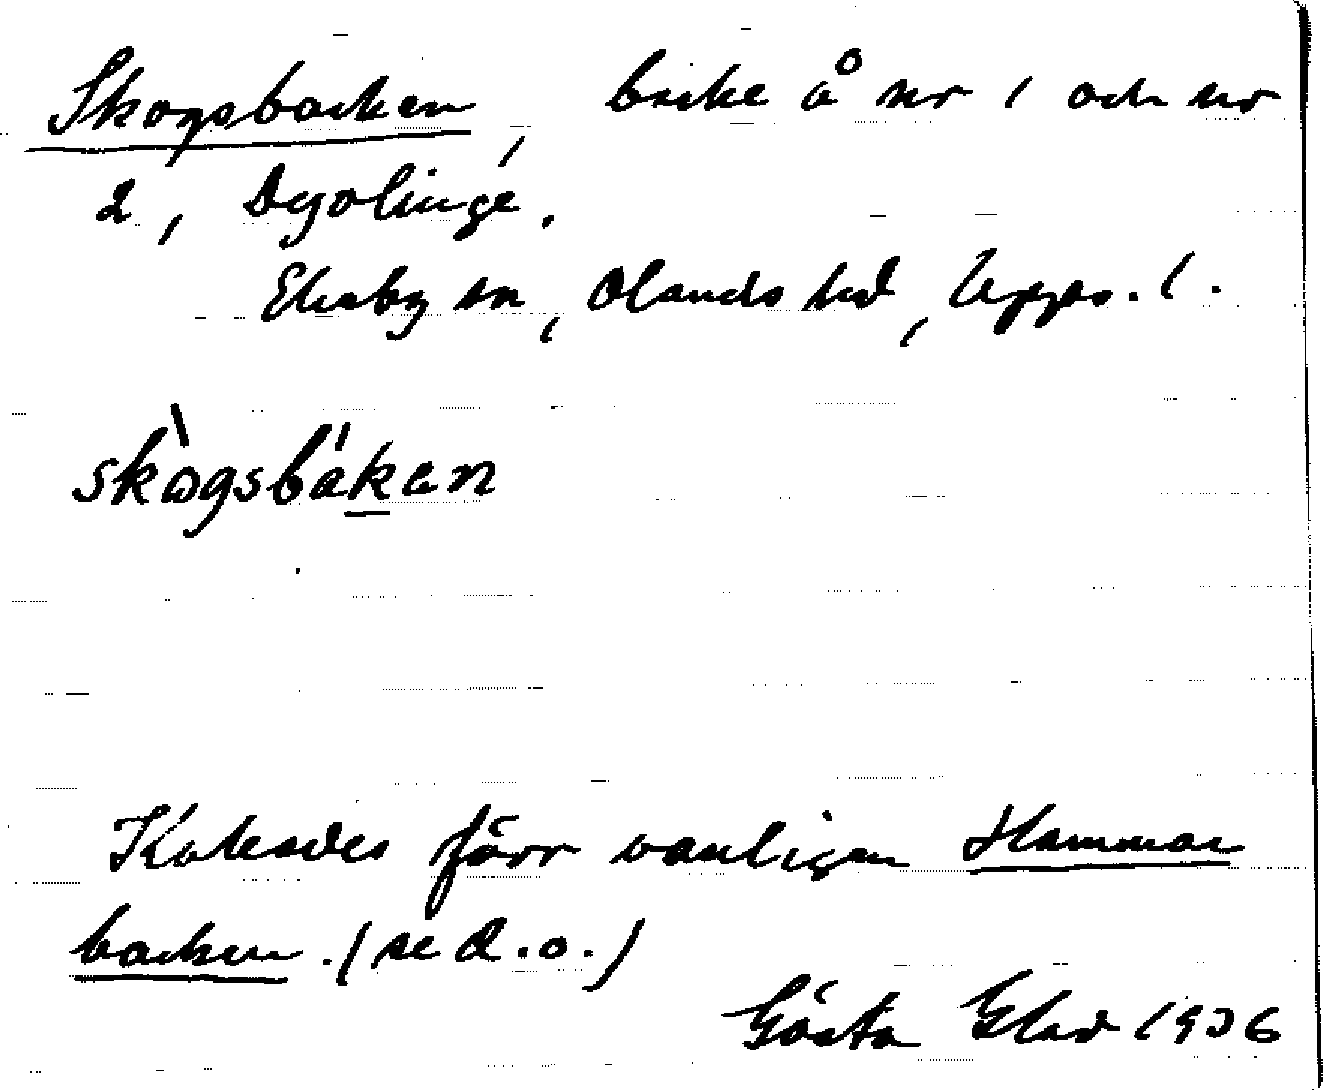 Skogsbacken, backe å nr 1 och nr
2, Dyolinge.
Ekeby sn, Olands hd, Upps. l.
skògsbákan
Kallades förr vanligen Hammar
backen. (se d.o.)
Gösta Elad 1936